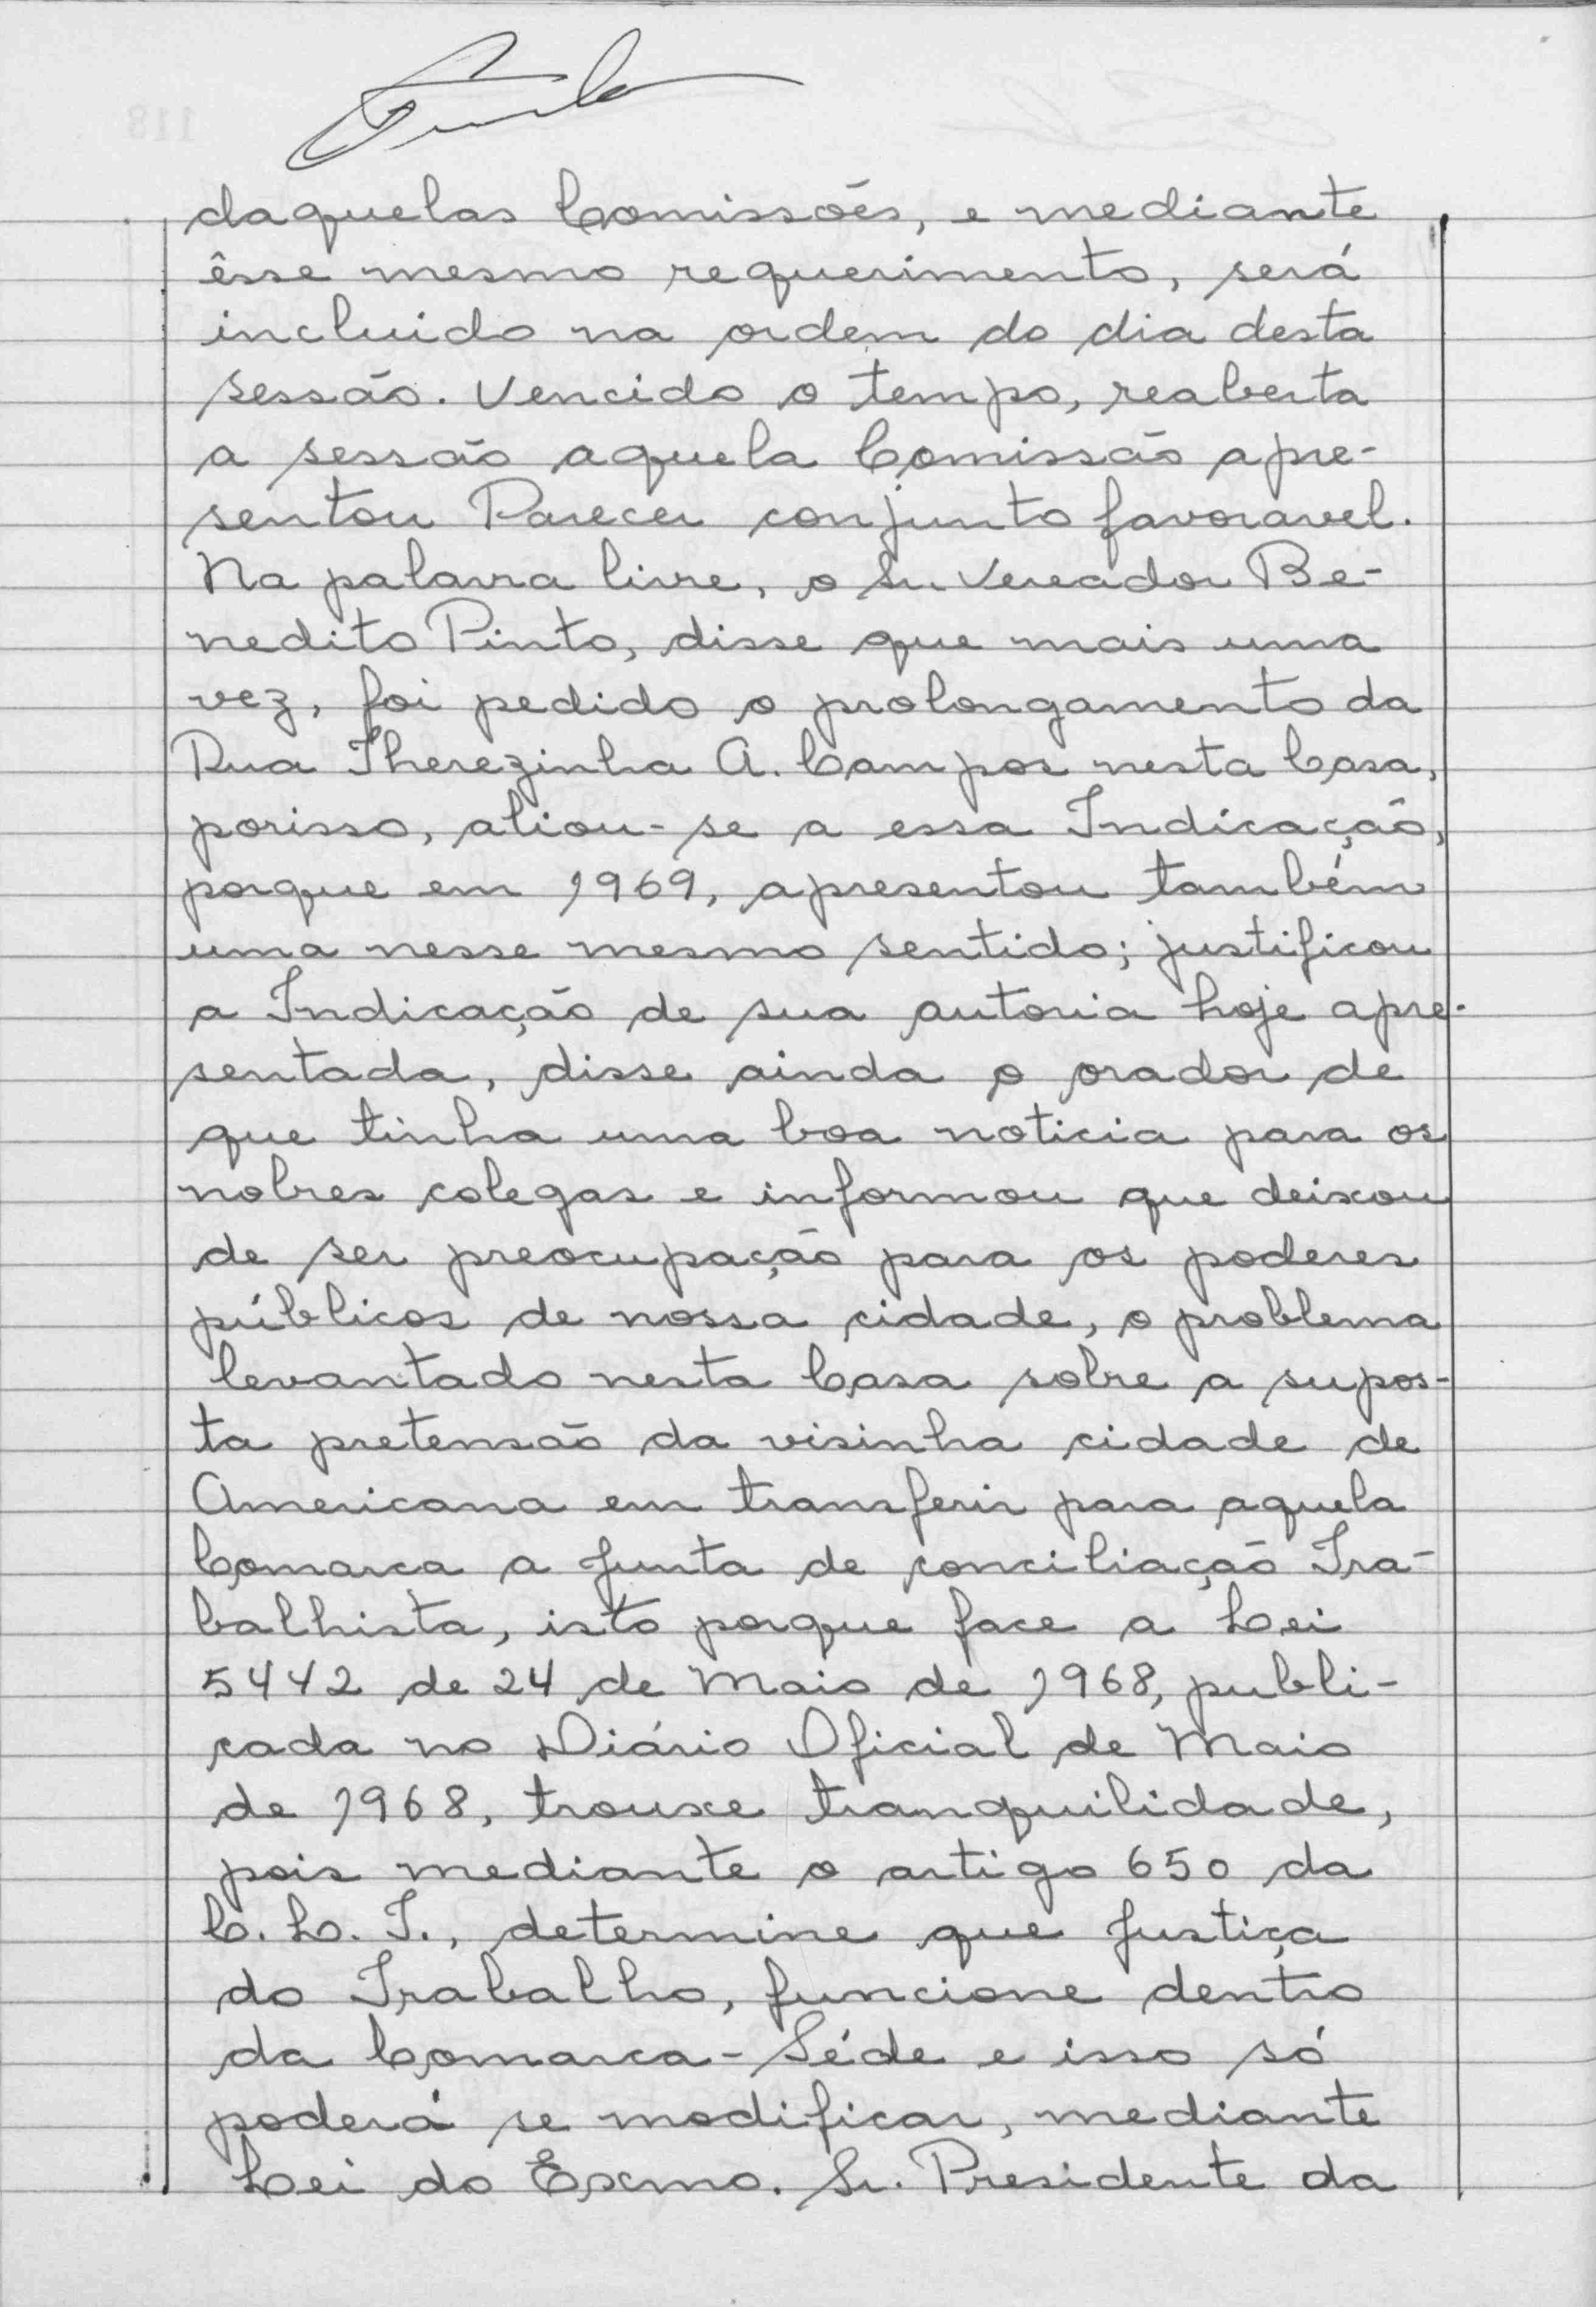 daquelas Comissões, e mediante
êsse mesmo requerimento, será
incluido na ordem do dia desta
sessão. Vencido o tempo, reaberta
a sessão aquela Comissão apre-
sentou Parecer conjunto favoravel.
Na palavra livre, o Sr. Vereador Be-
nedito Pinto, disse que mais uma
vez, foi pedido o prolongamento da
Rua Therezinha A. Campos nesta Casa,
porisso, aliou-se a essa Indicação,
porque em 1969, apresentou também
uma nesse mesmo sentido; justificou
a Indicação de sua autoria hoje apre-
sentada, disse ainda o orador de
que tinha uma boa noticia para os
nobres colegas e informou que deixou
de ser preocupação para os poderes
públicos de nossa cidade, o problema
levantado nesta Casa sobre a supos-
ta pretensão da visinha cidade de
Americana em transferir para aquela
Comarca a Junta de conciliação Tra-
balhista, isto porque face a Lei
5442 de 24 de Maio de 1968, publi-
cada no Diário Oficial de Maio
de 1968, trouxe tranquilidade,
pois mediante o artigo 650 da
C. L. T., determine que Justiça
do Trabalho, funcione dentro
da Comarca-Séde e isso só
poderá se modificar, mediante
Lei do Exmo. Sr. Presidente da